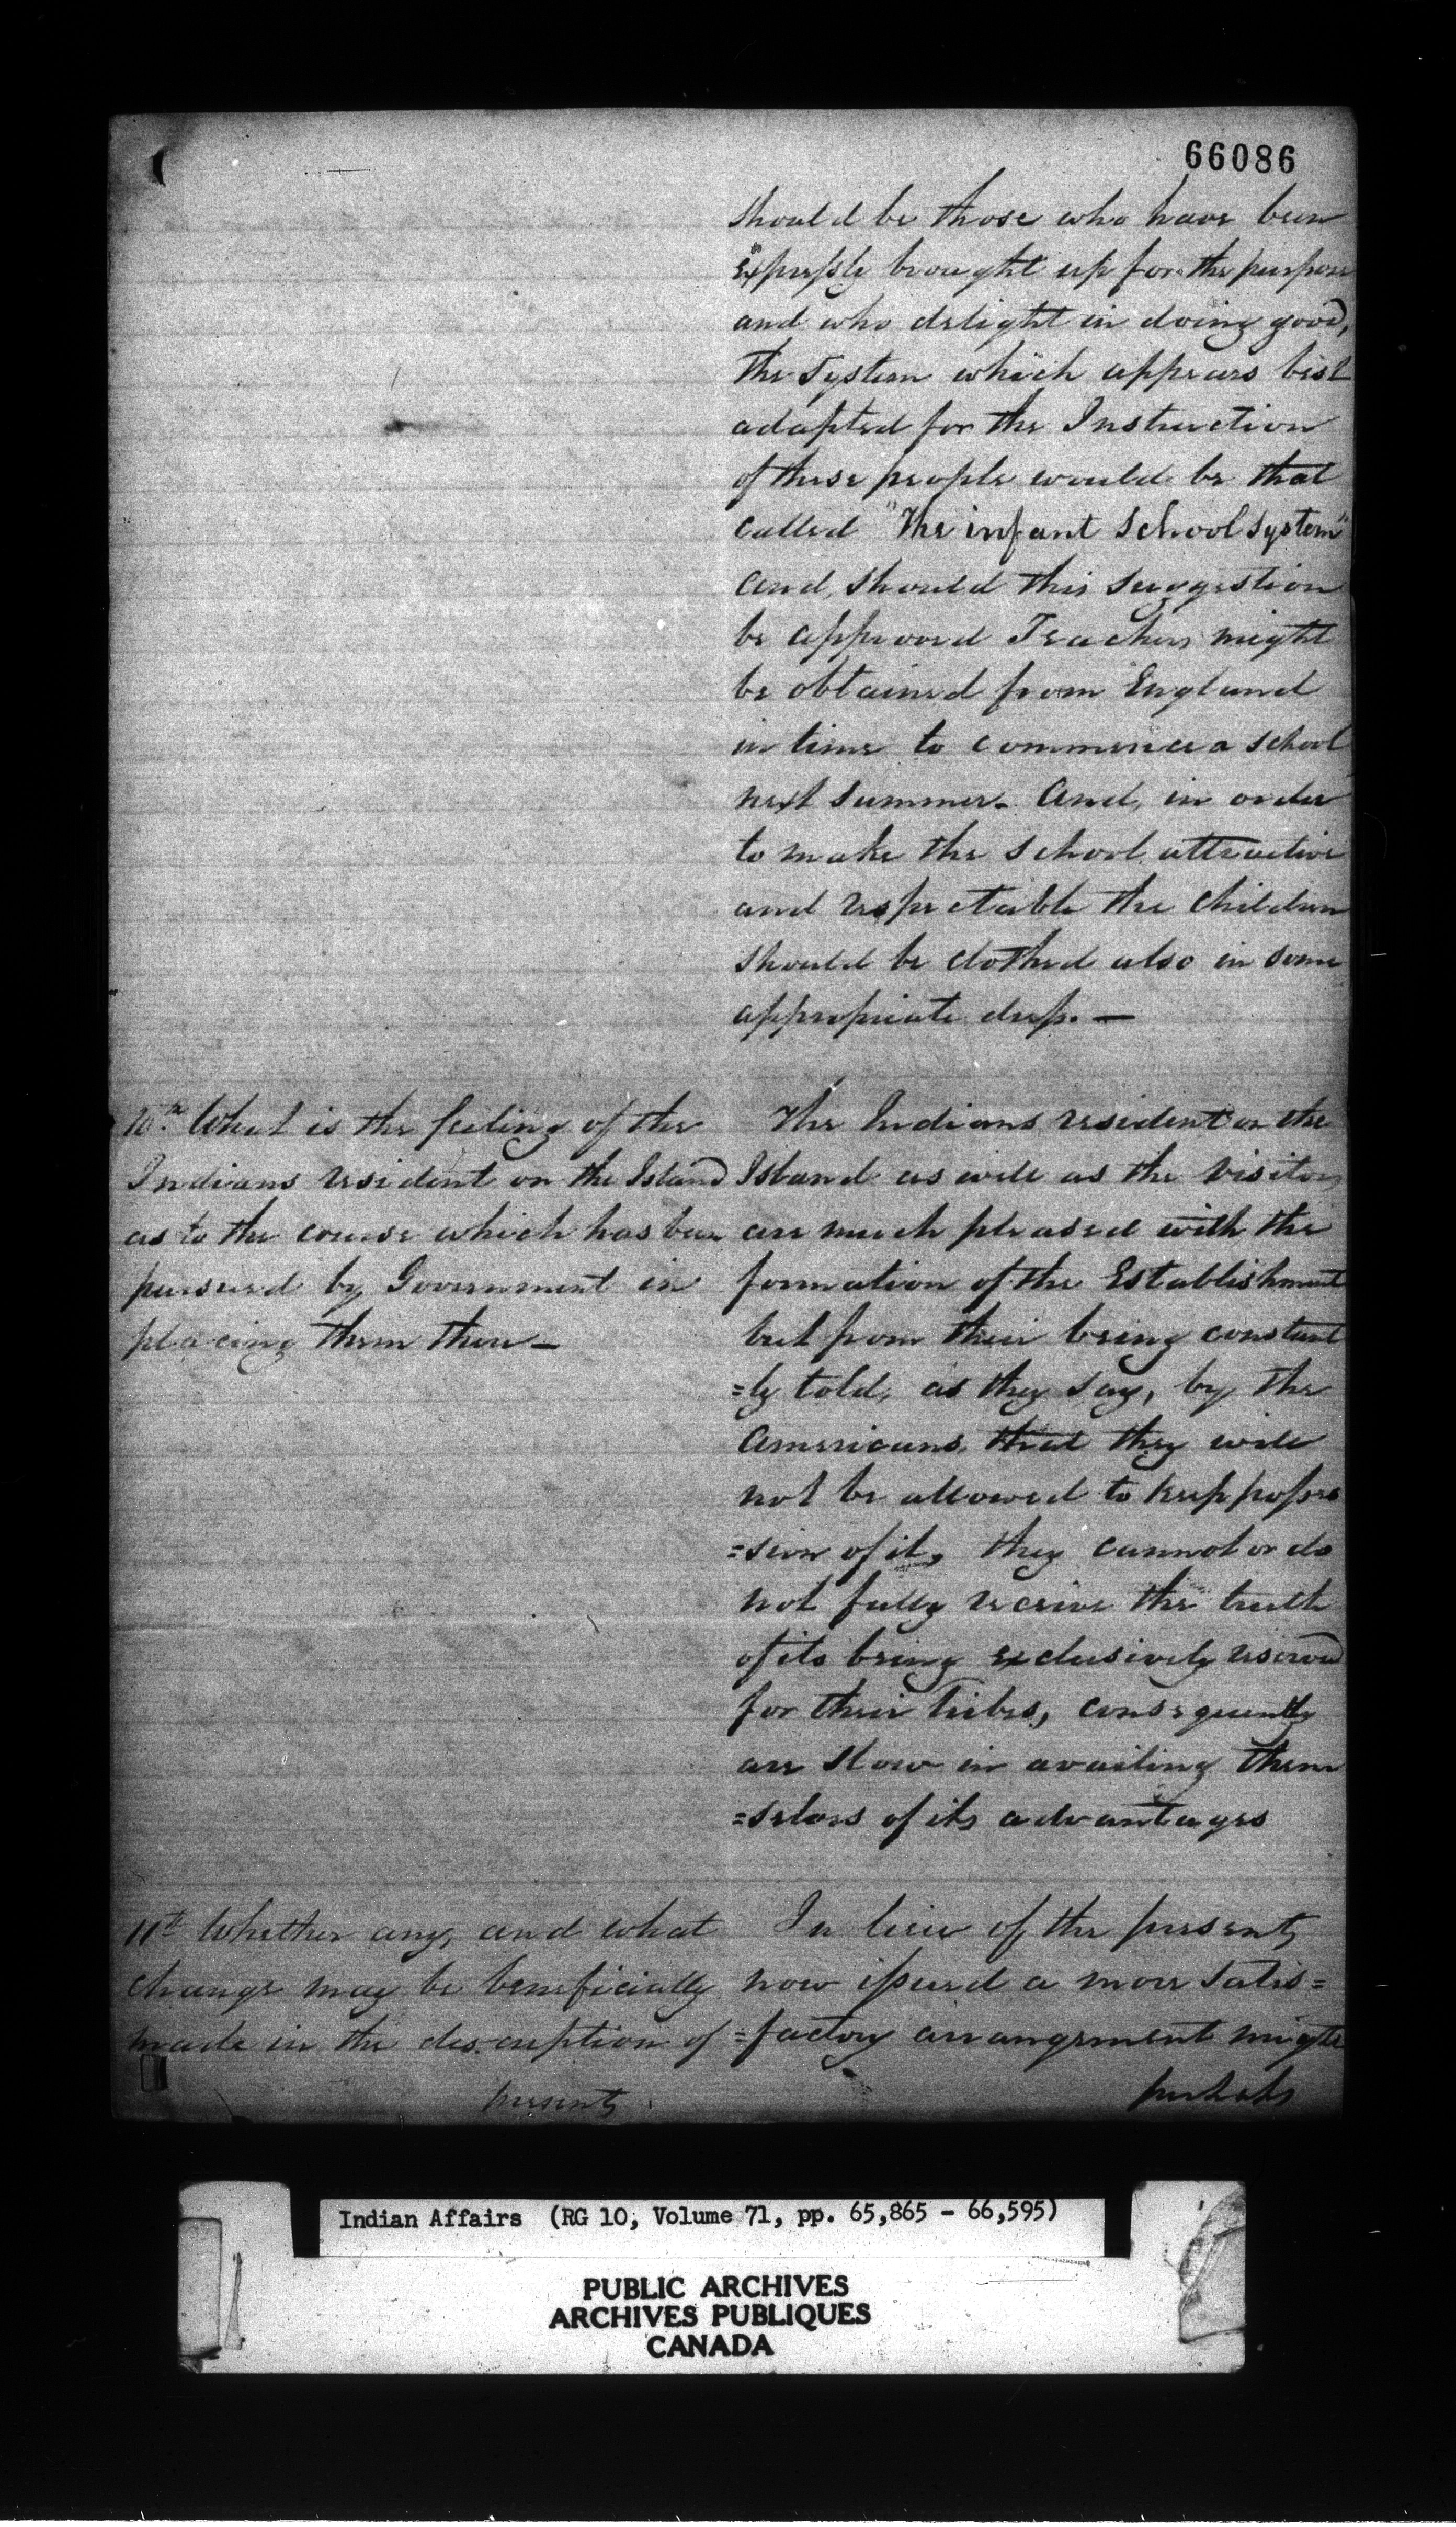 66086
should be those who have been
expressly brought up for the purpose
and who delight in doing good,
The System which appears best
adapted for the Instruction
of these people would be that
called "The infant School System"
and, should this suggestion
be approved Teachers might
be obtained from England
in time to commence a school
next summer. And, in order
to make the school attractive
and respectable the children
should be clothed also in some
appropriate dress. —
10th What is the feeling of the
Indians resident on the Island
as to the course which has been
pursued by Government in
placing them there —
The Indians resident on the
Island as well as the visitors
are much pleased with the
formation of the Establishment
but from their being constant
=ly told, as they say, by the
Americans that they will
not be allowed to keep posses
=sion of it, they cannot or do
not fully receive the truth
of its being exclusively reserved
for their Tribes, consequently
are slow in availing them
=selves of its advantages
11th Whether any, and what
change may be beneficially
made in the description of
presents
In lieu of the presents
now issued a more satis=
=factory arrangement might
perhaps
Indian Affairs (RG 10, Volume 71, pp. 65,865 - 66,595)
PUBLIC ARCHIVES
ARCHIVES PUBLIQUES
CANADA